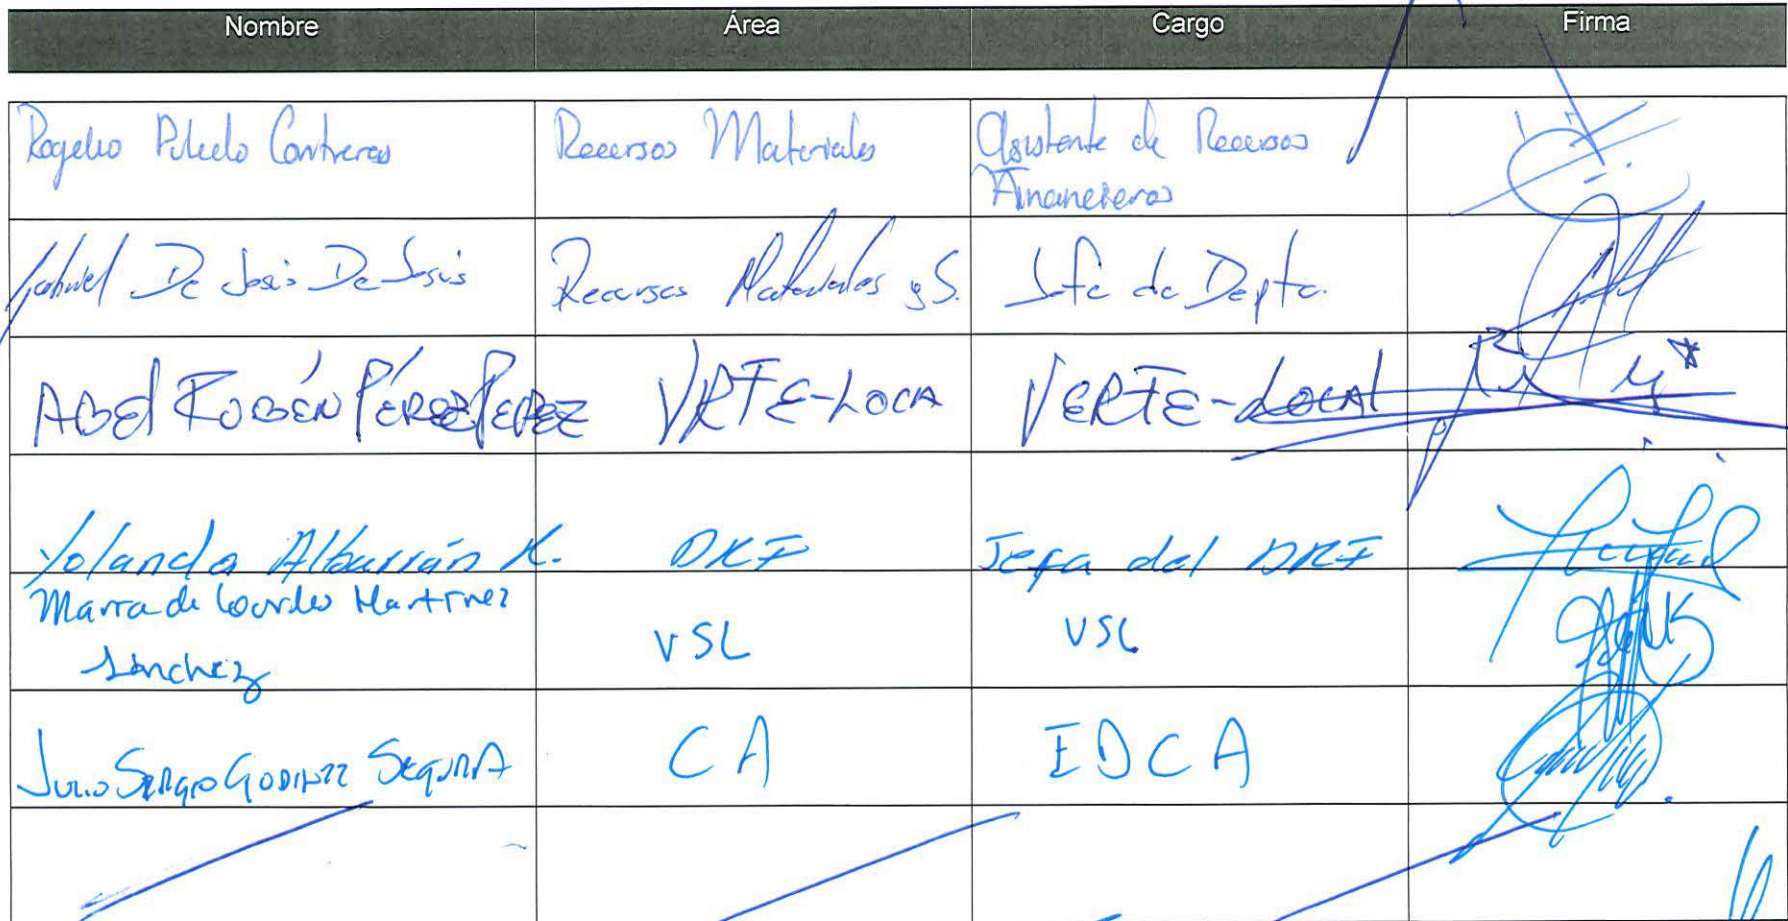 Nombre Área Cargo Firma
Rogelio Pulido Contreras Recursos Materiales Asistente de Recursos
Financieros
Gabriel De Jesús De Jesús Recursos Materiales y S. Jefe de Depto.
ABEl RUBÉN PÉREZ PEREZ VRFE-LOCA VERFE-LOCAL
Yolanda Albarrán DRF Jefa del DRF
María de Lourdes Martínez
Sánchez VSL VSL
JULIO SERGIO GODINEZ SEGURA CA EDCA